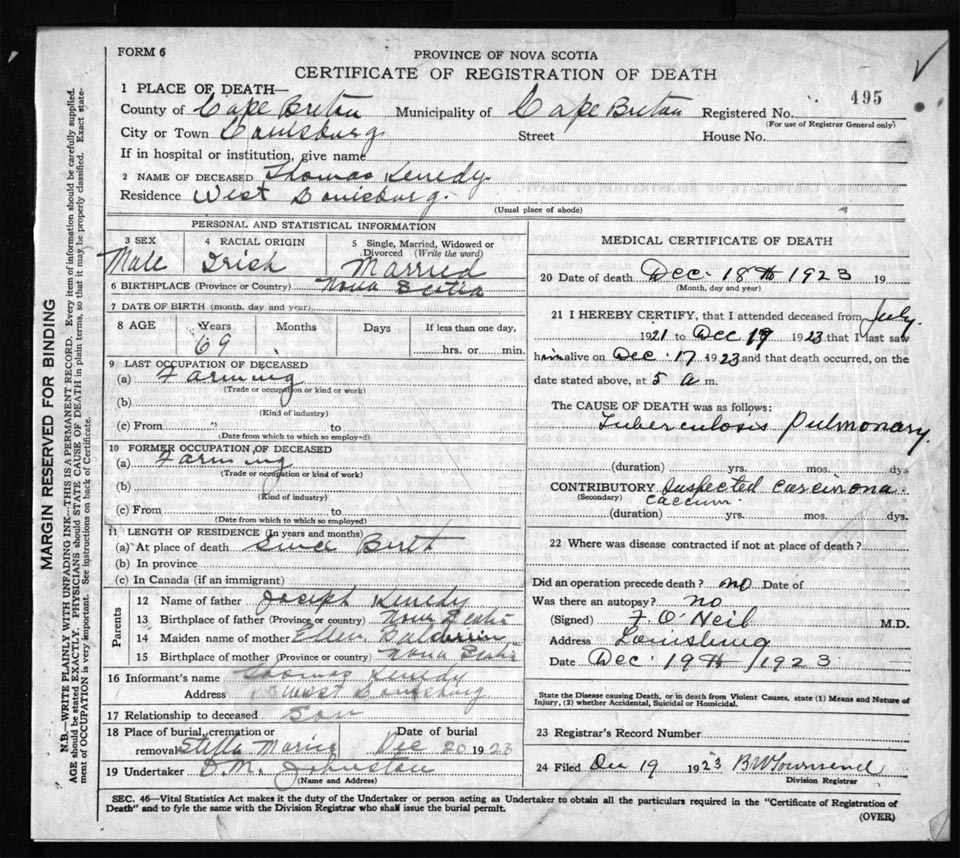 FORM 6
PROVINCE OF NOVA SCOTIA
CERTIFICATE OF REGISTRATION OF DEATH
495
1 PLACE OF DEATH—
County of Cape Breton Municipality of Cape Breton Registered No.
(For use of Registrar General only)
City or Town Louisburg Street House No.
If in hospital or institution, give name
2 NAME OF DECEASED Thomas Kenedy
Residence West Louisburg.
(Usual place of abode)
PERSONAL AND STATISTICAL INFORMATION
3 SEX 4 RACIAL ORIGIN 5 Single, Married, Widowed or Divorced (Write the word)
Male Irish Married
6 BIRTHPLACE (Province or Country) Nova Scotia
7 DATE OF BIRTH (month, day and year)
8 AGE Years Months Days If less than one day,
69 hrs. or min.
9 LAST OCCUPATION OF DECEASED
(a) Farming
(Trade or occupation or kind of work)
(b)
(Kind of industry)
(c) From to
(Date from which to which so employed)
10 FORMER OCCUPATION OF DECEASED
(a) Farming
(Trade or occupation or kind of work)
(b)
(Kind of industry)
(c) From to
(Date from which to which so employed)
11 LENGTH OF RESIDENCE (In years and months)
(a) At place of death Since Birt
(b) In province
(c) In Canada (if an immigrant)
Parents
12 Name of father Joseph Kenedy
13 Birthplace of father (Province or country) Nova Scotia
14 Maiden name of mother Ellen
15 Birthplace of mother (Province or country) Nova Scotia
16 Informant's name Thomas Kenedy
Address West Louisburg
17 Relationship to deceased Son
18 Place of burial, cremation or removal Stella Maris
Date of burial Dec 20 1923
19 Undertaker D.M. Johnston
(Name and Address)
MEDICAL CERTIFICATE OF DEATH
20 Date of death Dec. 18th 1923 19
(Month, day and year)
21 I HEREBY CERTIFY, that I attended deceased from July.
1921 to Dec 19 1923 that I last saw
him alive on Dec. 17 1923 and that death occurred, on the
date stated above, at 5 a m.
The CAUSE OF DEATH was as follows:
Tuberculosis Pulmonary.
(duration) yrs. mos. dys
CONTRIBUTORY Suspected carcinona.
(Secondary) caecum.
(duration) yrs. mos. dys.
22 Where was disease contracted if not at place of death?
Did an operation precede death? no Date of
Was there an autopsy? no
(Signed) F. O'Neil M.D.
Address Louisburg
Date Dec. 19th 1923
State the Disease causing Death, or in death from Violent Causes, state (1) Means and Nature of
Injury, (2) whether Accidental, Suicidal or Homicidal.
23 Registrar's Record Number
24 Filed Dec 19 1923 B W Townsend
Division Registrar
SEC. 46—Vital Statistics Act makes it the duty of the Undertaker or person acting as Undertaker to obtain all the particulars required in the "Certificate of Registration of
Death" and to fyle the same with the Division Registrar who shall issue the burial permit.
(OVER)
MARGIN RESERVED FOR BINDING
N.B.—WRITE PLAINLY WITH UNFADING INK—THIS IS A PERMANENT RECORD. Every item of information should be carefully supplied.
AGE should be stated EXACTLY. PHYSICIANS should STATE CAUSE OF DEATH in plain terms, so that it may be properly classified. Exact state-
ment of OCCUPATION is very important. See instructions on back of Certificate.